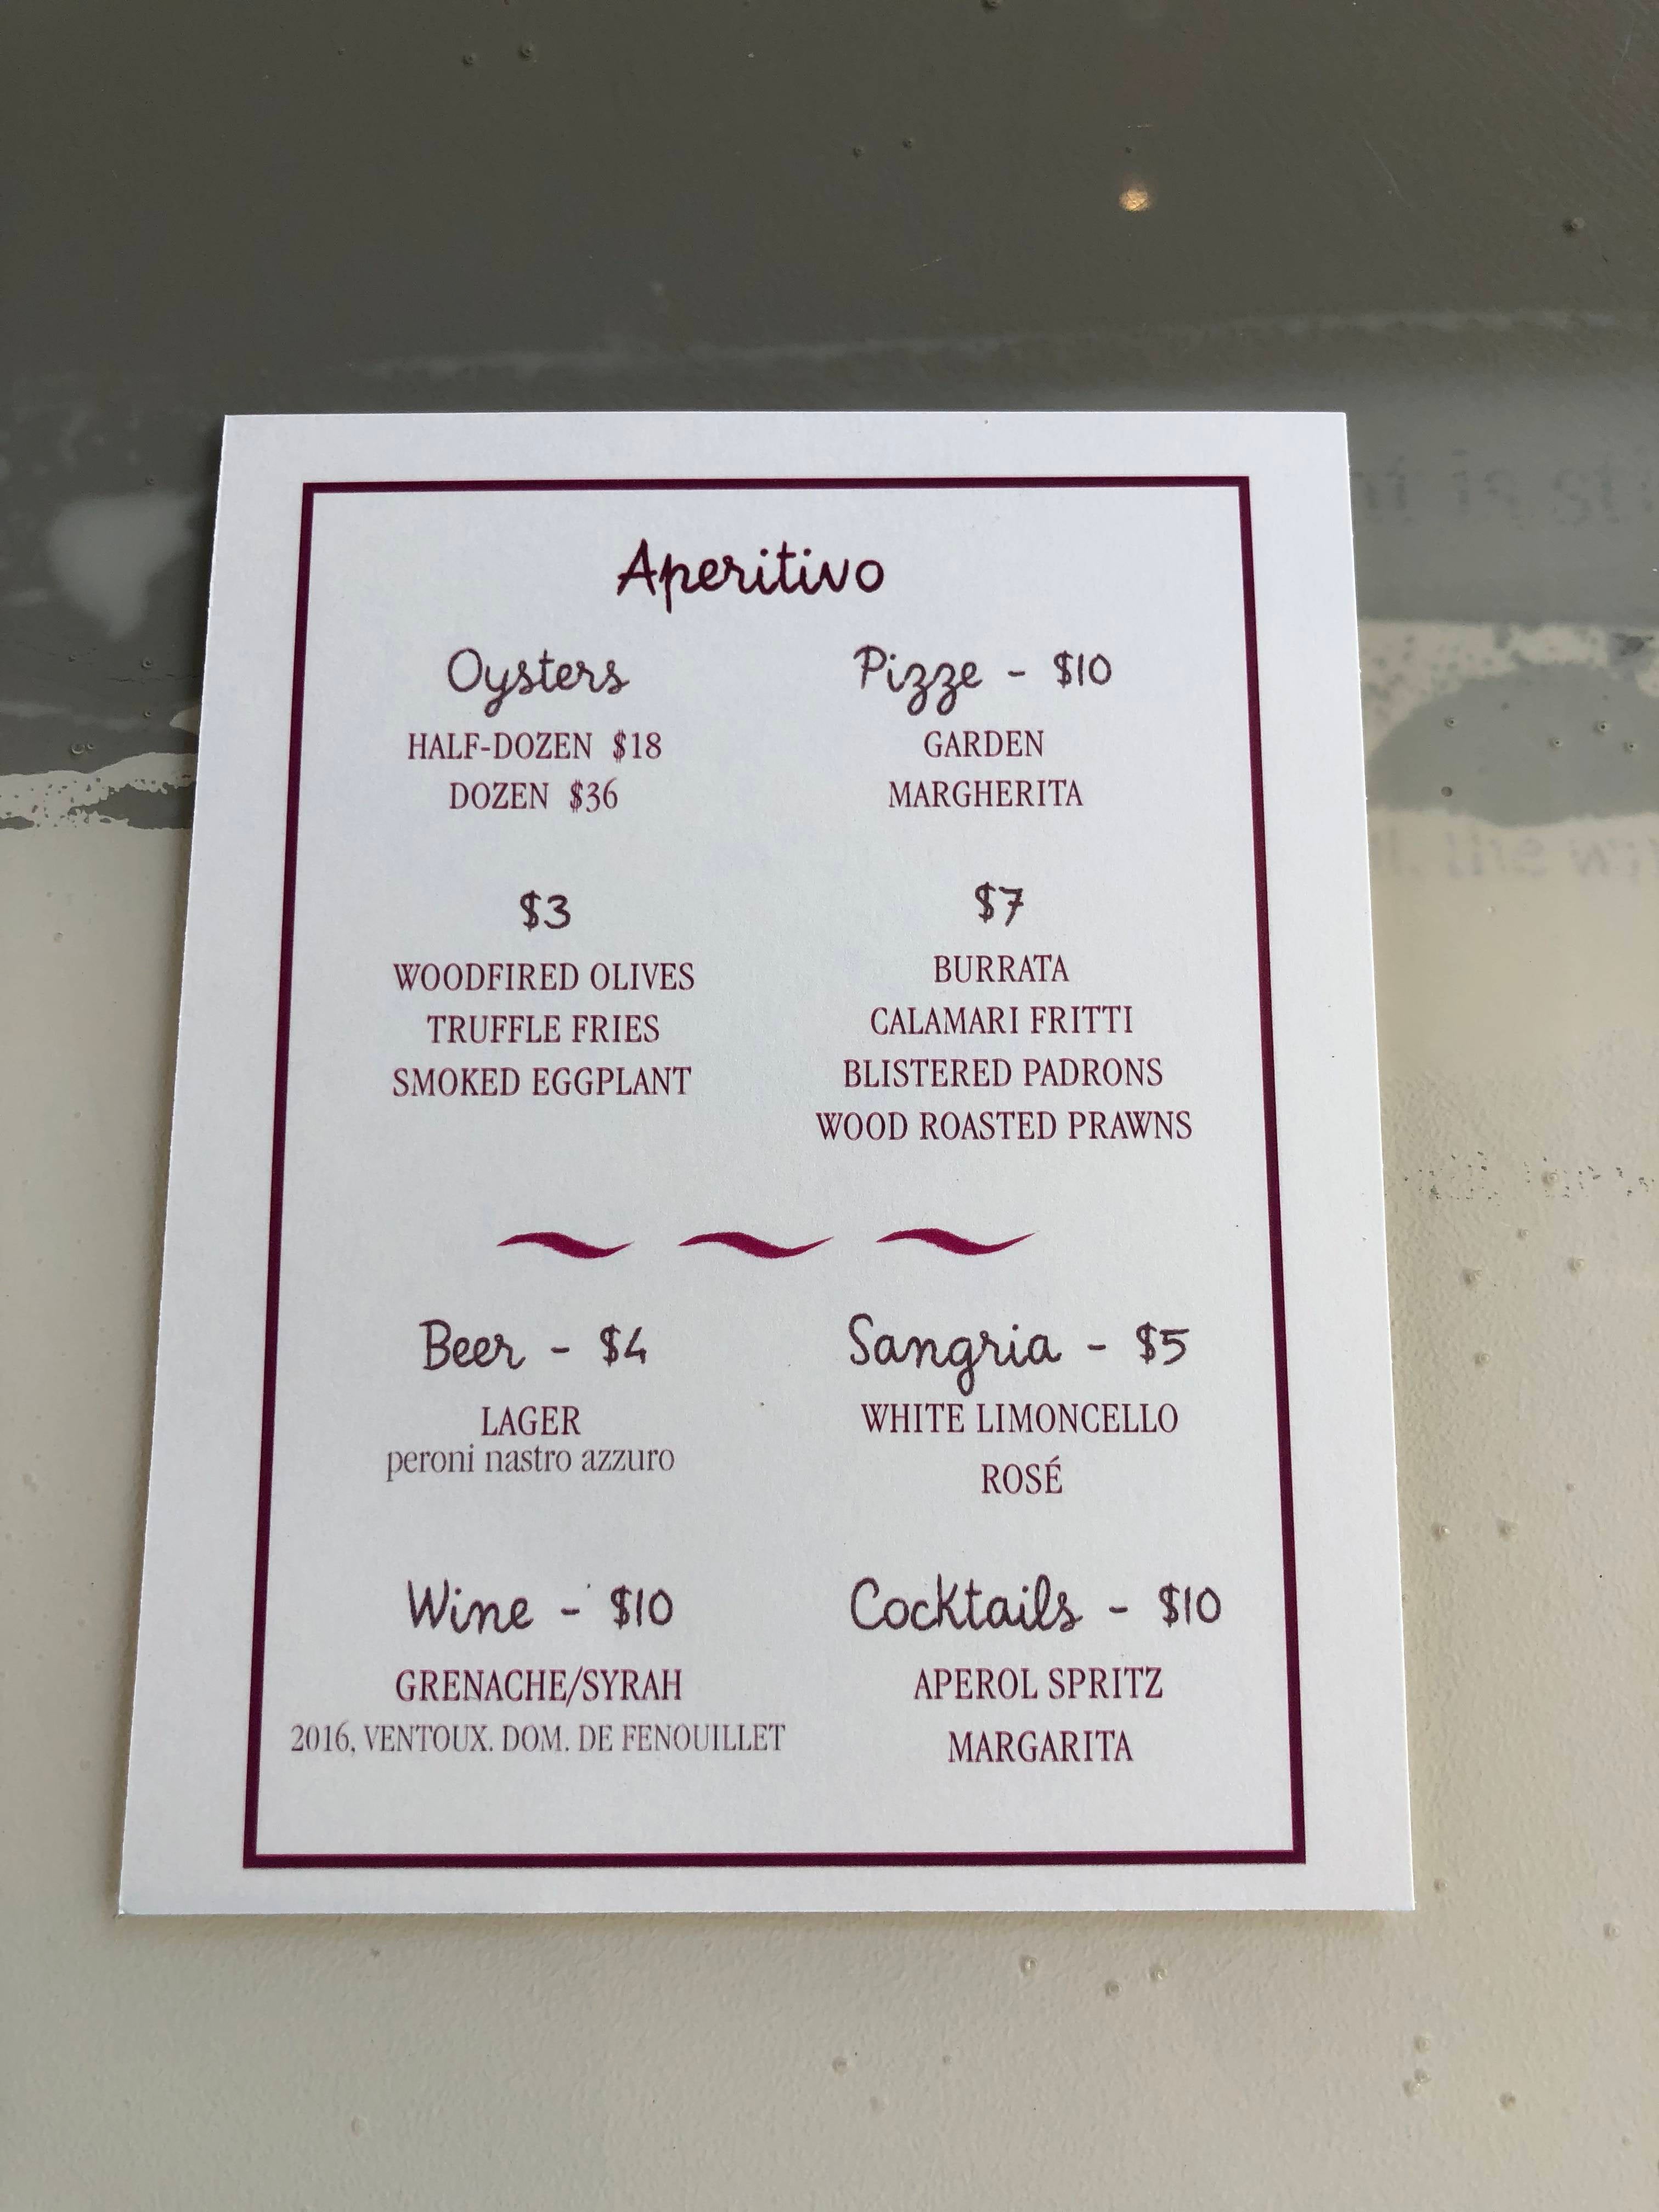 Aperitivo
Oysters
HALF-DOZEN $18
DOZEN $36
Pizze - $10
GARDEN
MARGHERITA
$3
WOODFIRED OLIVES
TRUFFLE FRIES
SMOKED EGGPLANT
$7
BURRATA
CALAMARI FRITTI
BLISTERED PADRONS
WOOD ROASTED PRAWNS
Beer - $4
LAGER
peroni nastro azzuro
Sangria - $5
WHITE LIMONCELLO
ROSÉ
Wine - $10
GRENACHE/SYRAH
2016, VENTOUX. DOM. DE FENOUILLET
Cocktails - $10
APEROL SPRITZ
MARGARITA